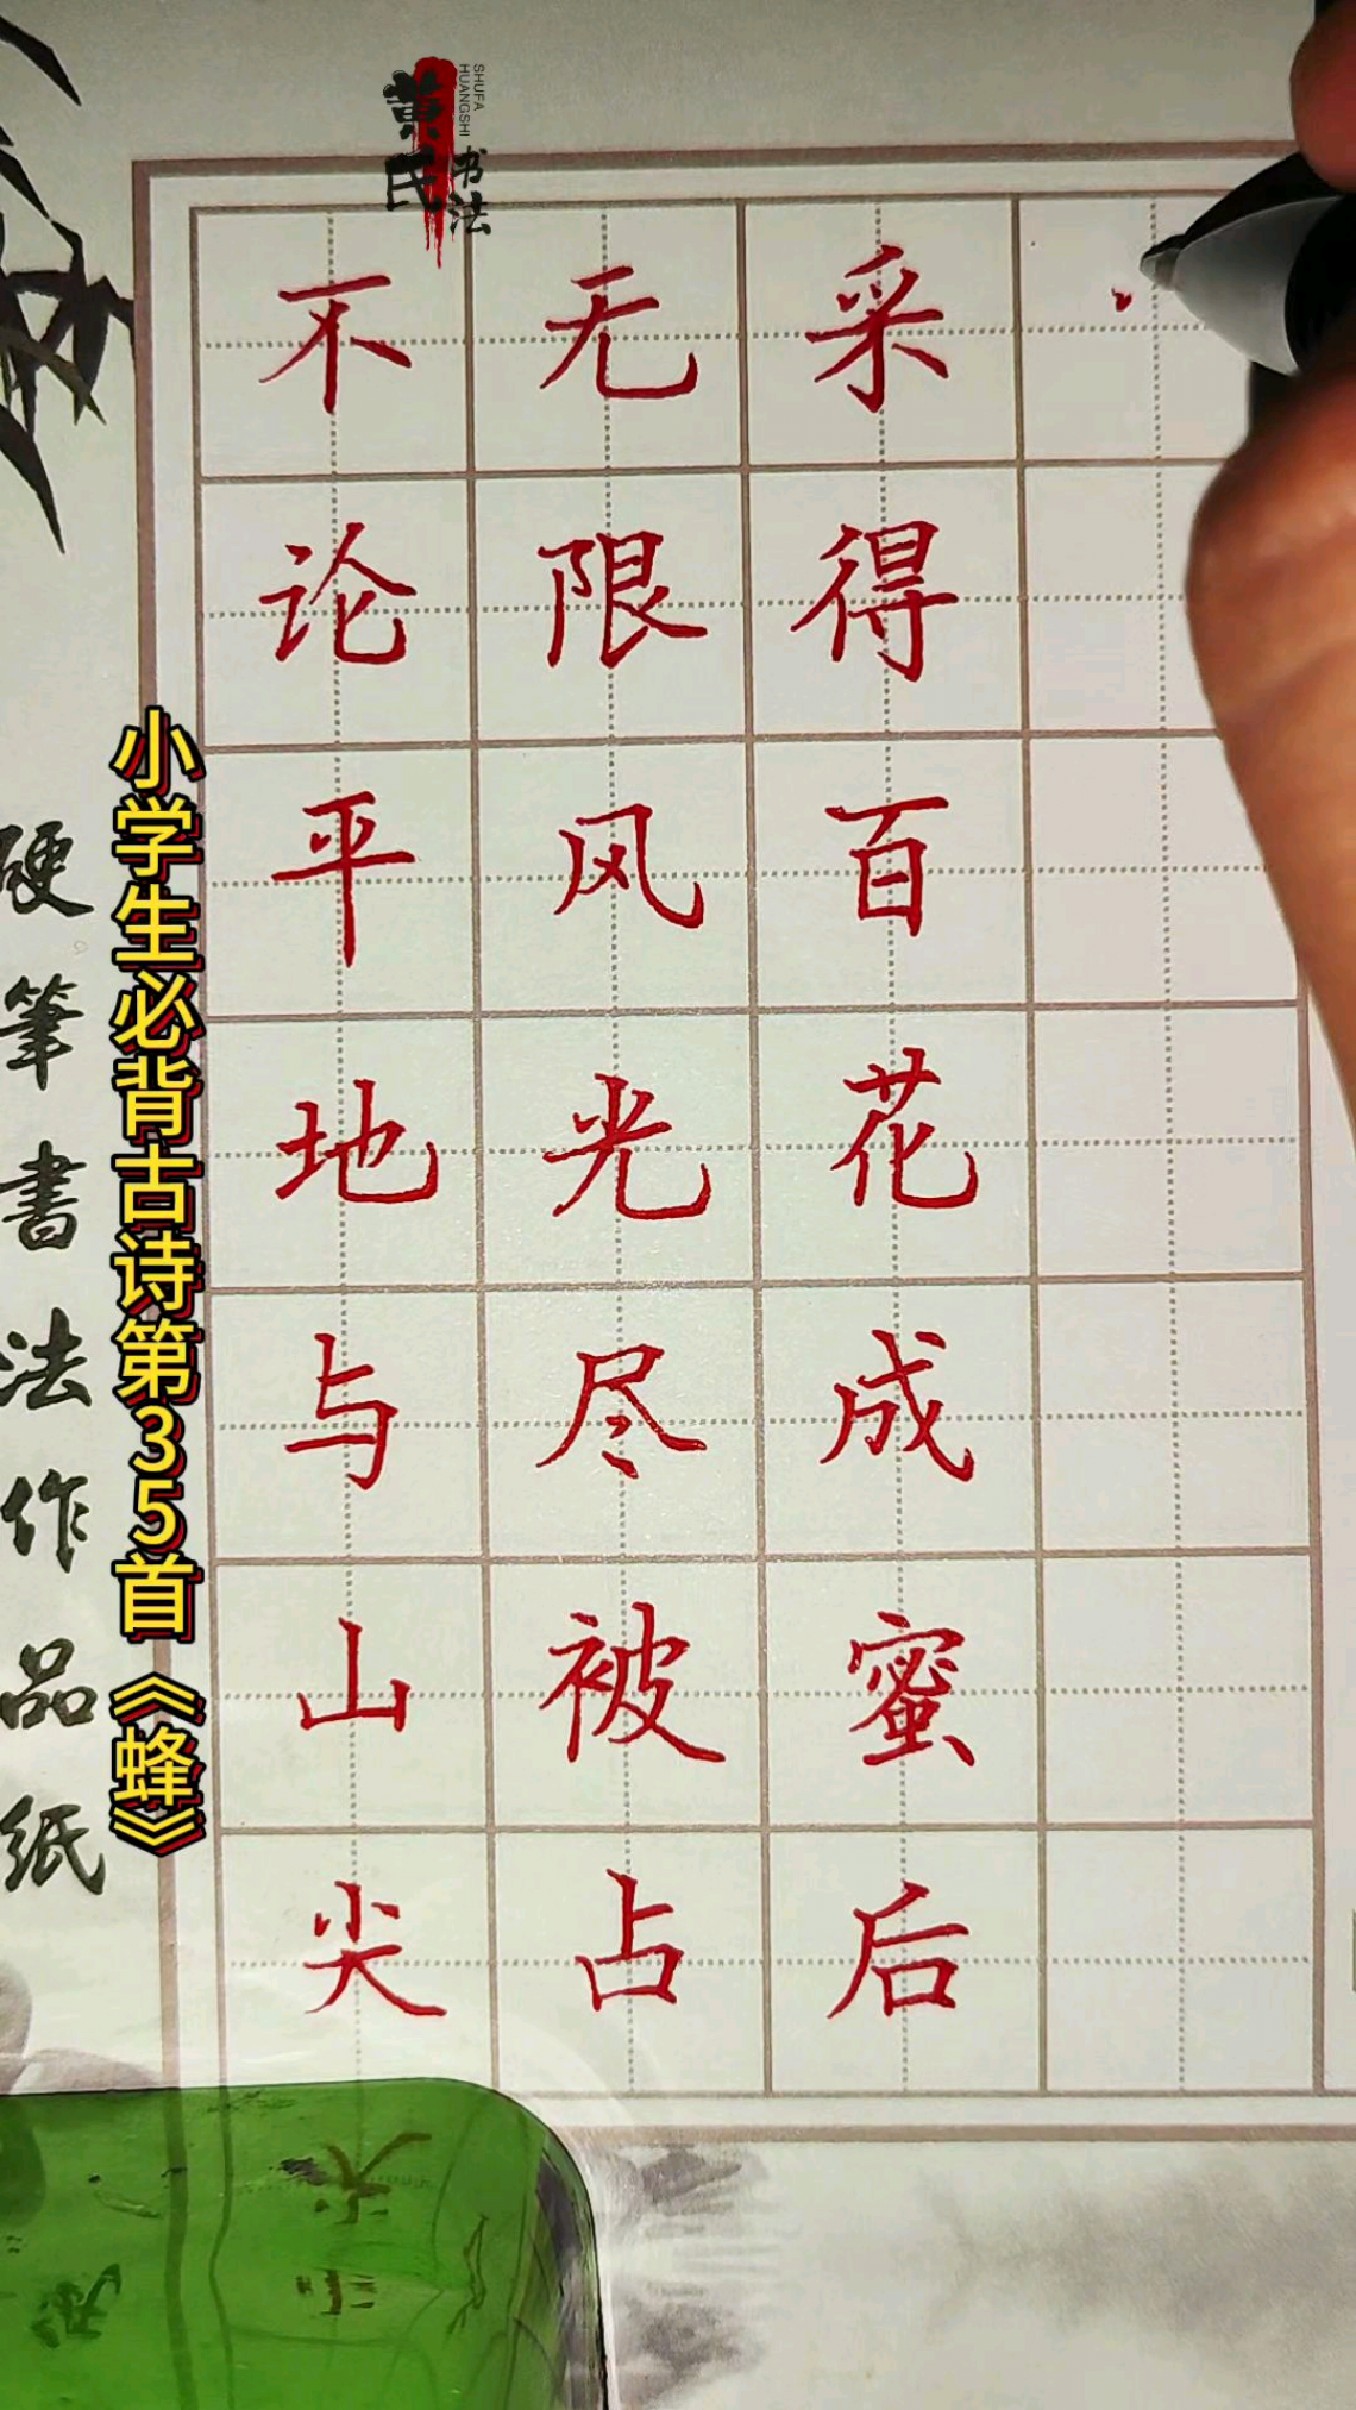 黄氏书法
SHUFA
HUANGSHI
不论平地与山尖
无限风光尽被占
采得百花成蜜后
小学生必背古诗第35首《蜂》
硬筆書法作品紙